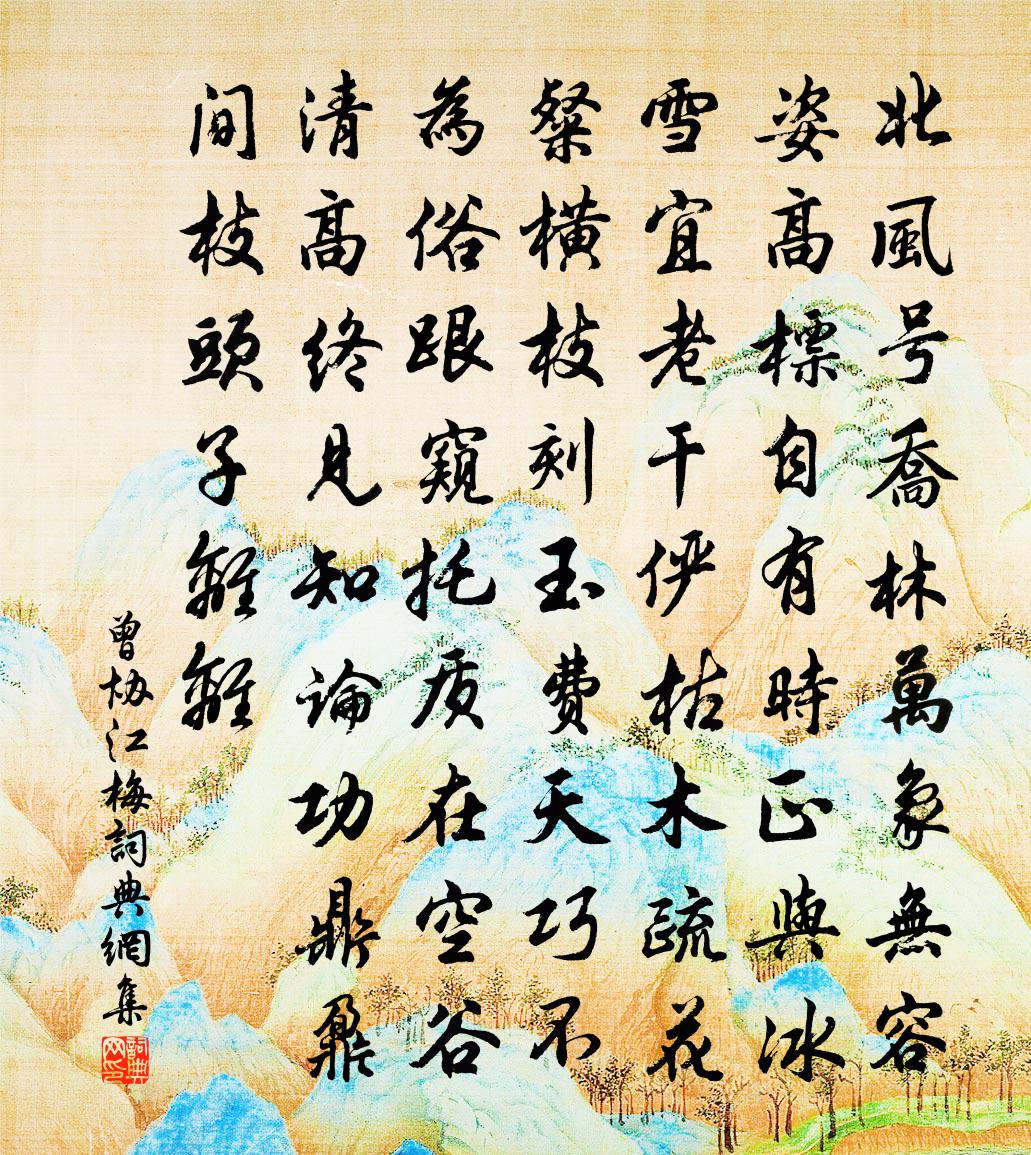 北風号喬林萬象無容
姿高標自有時正與冰
雪宜老干俨枯木疏花
粲橫枝刻玉費天巧不
為俗跟窺托质在空谷
清高终見知論功鼎鼐
间枝頭子離離
曾协江梅詞典網集
詞典网印